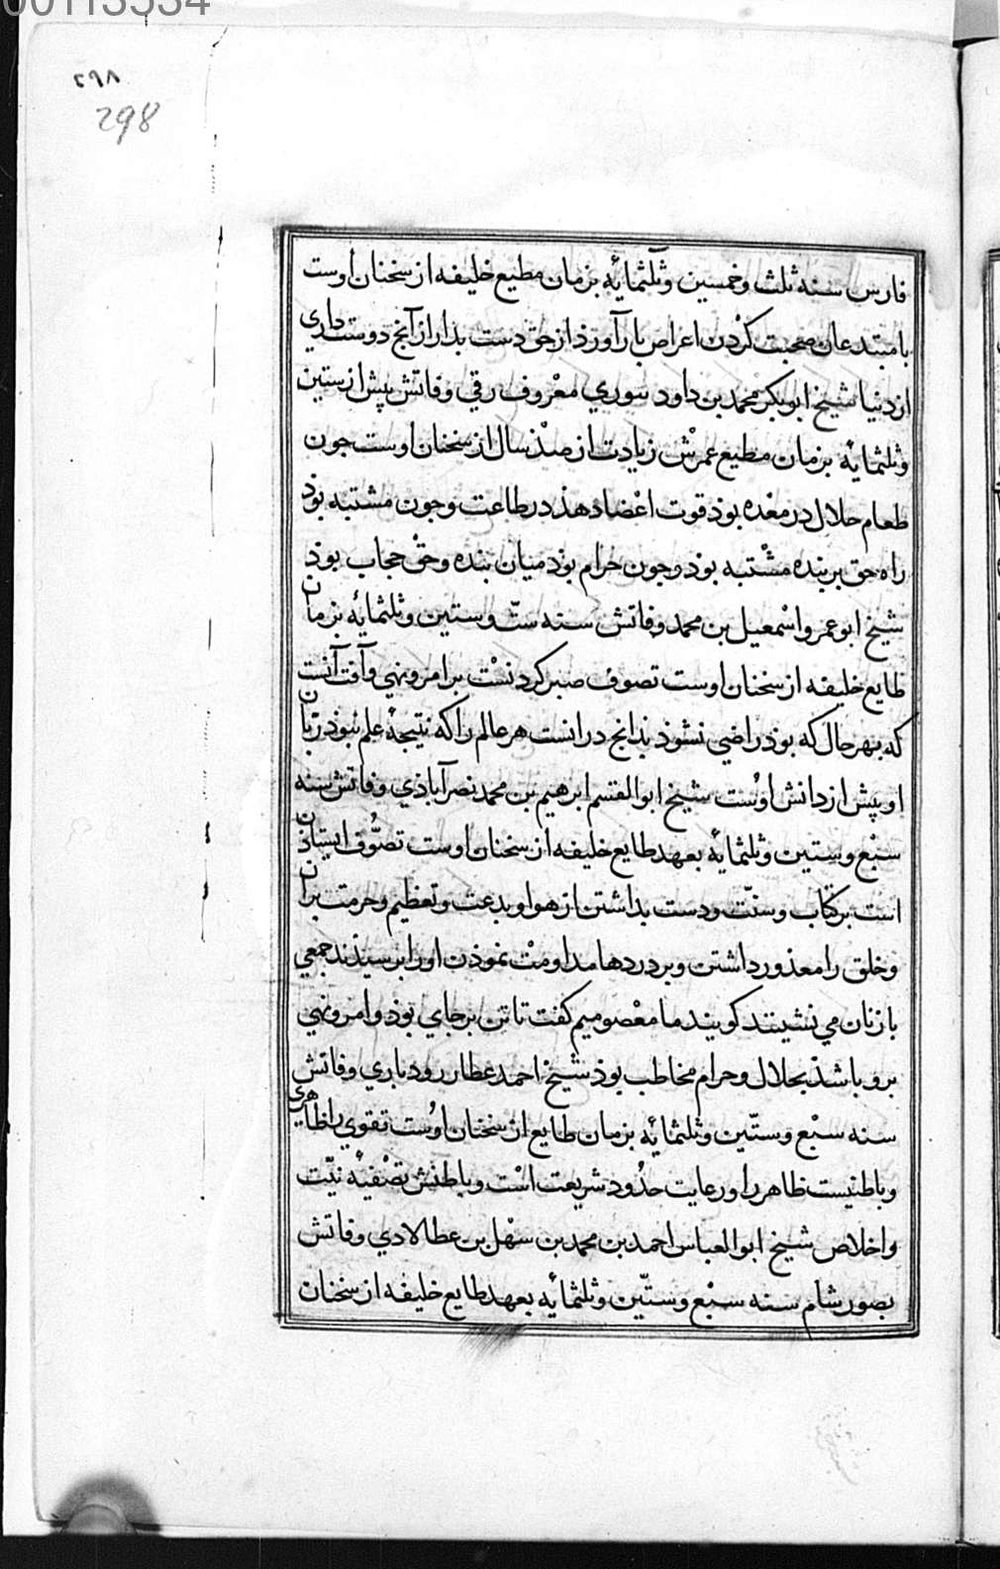 00113534
۲۹۸
298
فارس سنه ثلث وخمسین وثلثمایٔه بزمان مطیع خلیفه از سخنان اوست
با مبتدعان صحبت کردن اعراض بار آورذ از حق دست بدار از آنج دوست داری
از دنیا شیخ ابوبکر محمد بن داود سوری معروف رقی وفاتش پیش از ستین
وثلثمایٔه بزمان مطیع عمرش زیادت از صذ سال از سخنان اوست جون
طعام حلال در معده بوذ قوت اعضا دهذ در طاعت وجون مشتبه بوذ
راه حق بر بنده مشتبه بوذ وجون حرام بوذ میان بنده وحق حجاب بوذ
شیخ ابو عمرو اسمعیل بن محمد وفاتش سنه ستّ وستین وثلثمایٔه بزمان
طایع خلیفه از سخنان اوست تصوف صبر کردنست بر امر ونهی وآفت آنست
که بهر حال که بوذ راضی نشوذ بدانج درانست هر عالم را که نتیجهٔ علم نبوذ زبان
او پیش از دانش اوست شیخ ابو القسم ابرهیم بن محمد نصرآباذی وفاتش سنه
سبع وستین وثلثمایٔه بعهد طایع خلیفه از سخنان اوست تصوّف ایستاذن
است بر کتاب وسنّت ودست بداشتن از هوا وبدعت وتعظیم وحرمت بران
وخلق را معذور داشتن وبر دردها مداومت نموذن اورا برسیذند جمعی
با زنان می نشینند کویند ما معصومیم کفت تا تن بر جای بوذ وامر ونهی
برو باشذ بحلال وحرام مخاطب بوذ شیخ احمد عطار رودباری وفاتش
سنه سبع وستّین وثلثمایٔه بزمان طایع از سخنان اوست تقوی را ظاهری
وباطنیست ظاهر را ورعایت حذود شریعت است وباطنش تصفیهٔ نیّت
واخلاص شیخ ابو العباس احمد بن محمد بن سهل بن عطا لادی وفاتش
بصور شام سنه سبع وستّین وثلثمایٔه بعهد طایع خلیفه از سخنان